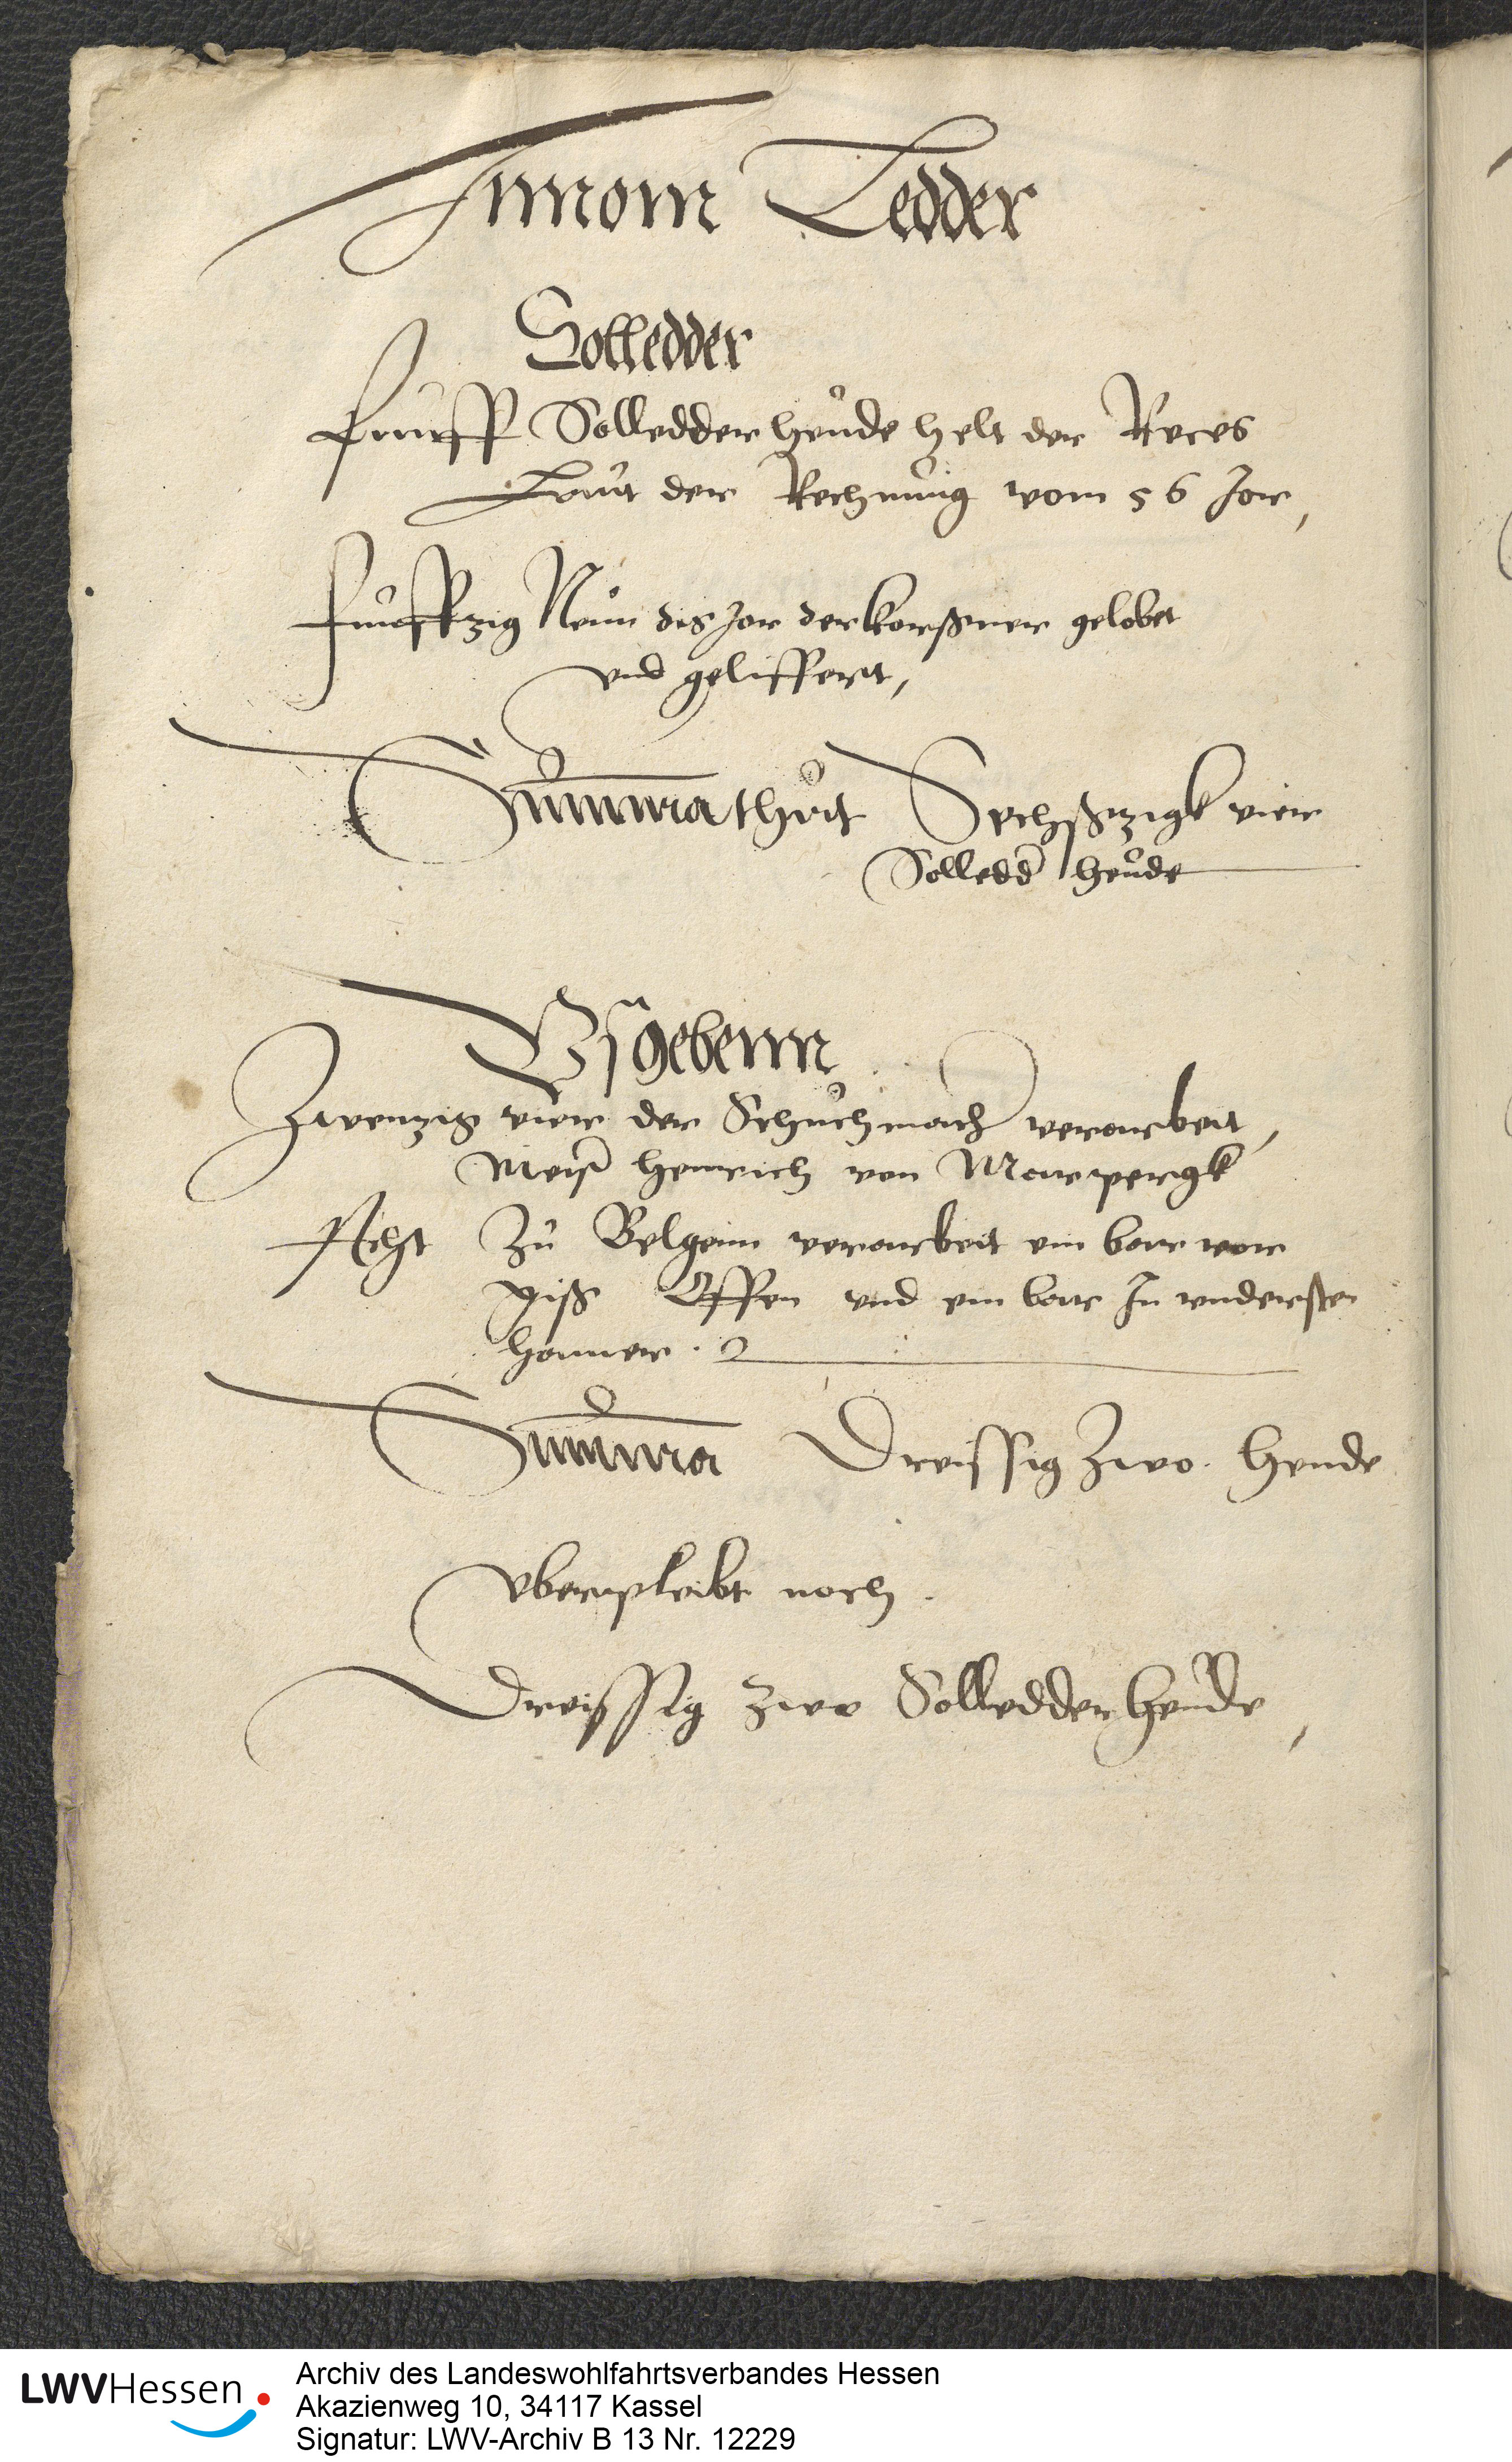 Innom Ledder
Solledder
Funff Solledder heude helt der Reces
Laut der Rechnung vom 56 Jar,
Funffzig Neun dis Jar der korßner gelobet
vnd geliffert,
Summa thut Sechßzigk vier
Solledd heude
Vsgebenn
Zwenzig vier der Schuchmach verarbeit,
Meist Henrich von Marpergk
Acht Zu Belgenn verarbeit ein bar vor
Offen vnd ein bar In vndersten
hamer.
Summa Dreissig Zwo. heude
vberpleibt noch.
Dreissig zwo Solledder heude,
LWVHessen
Archiv des Landeswohlfahrtsverbandes Hessen
Akazienweg 10, 34117 Kassel
Signatur: LWV-Archiv B 13 Nr. 12229